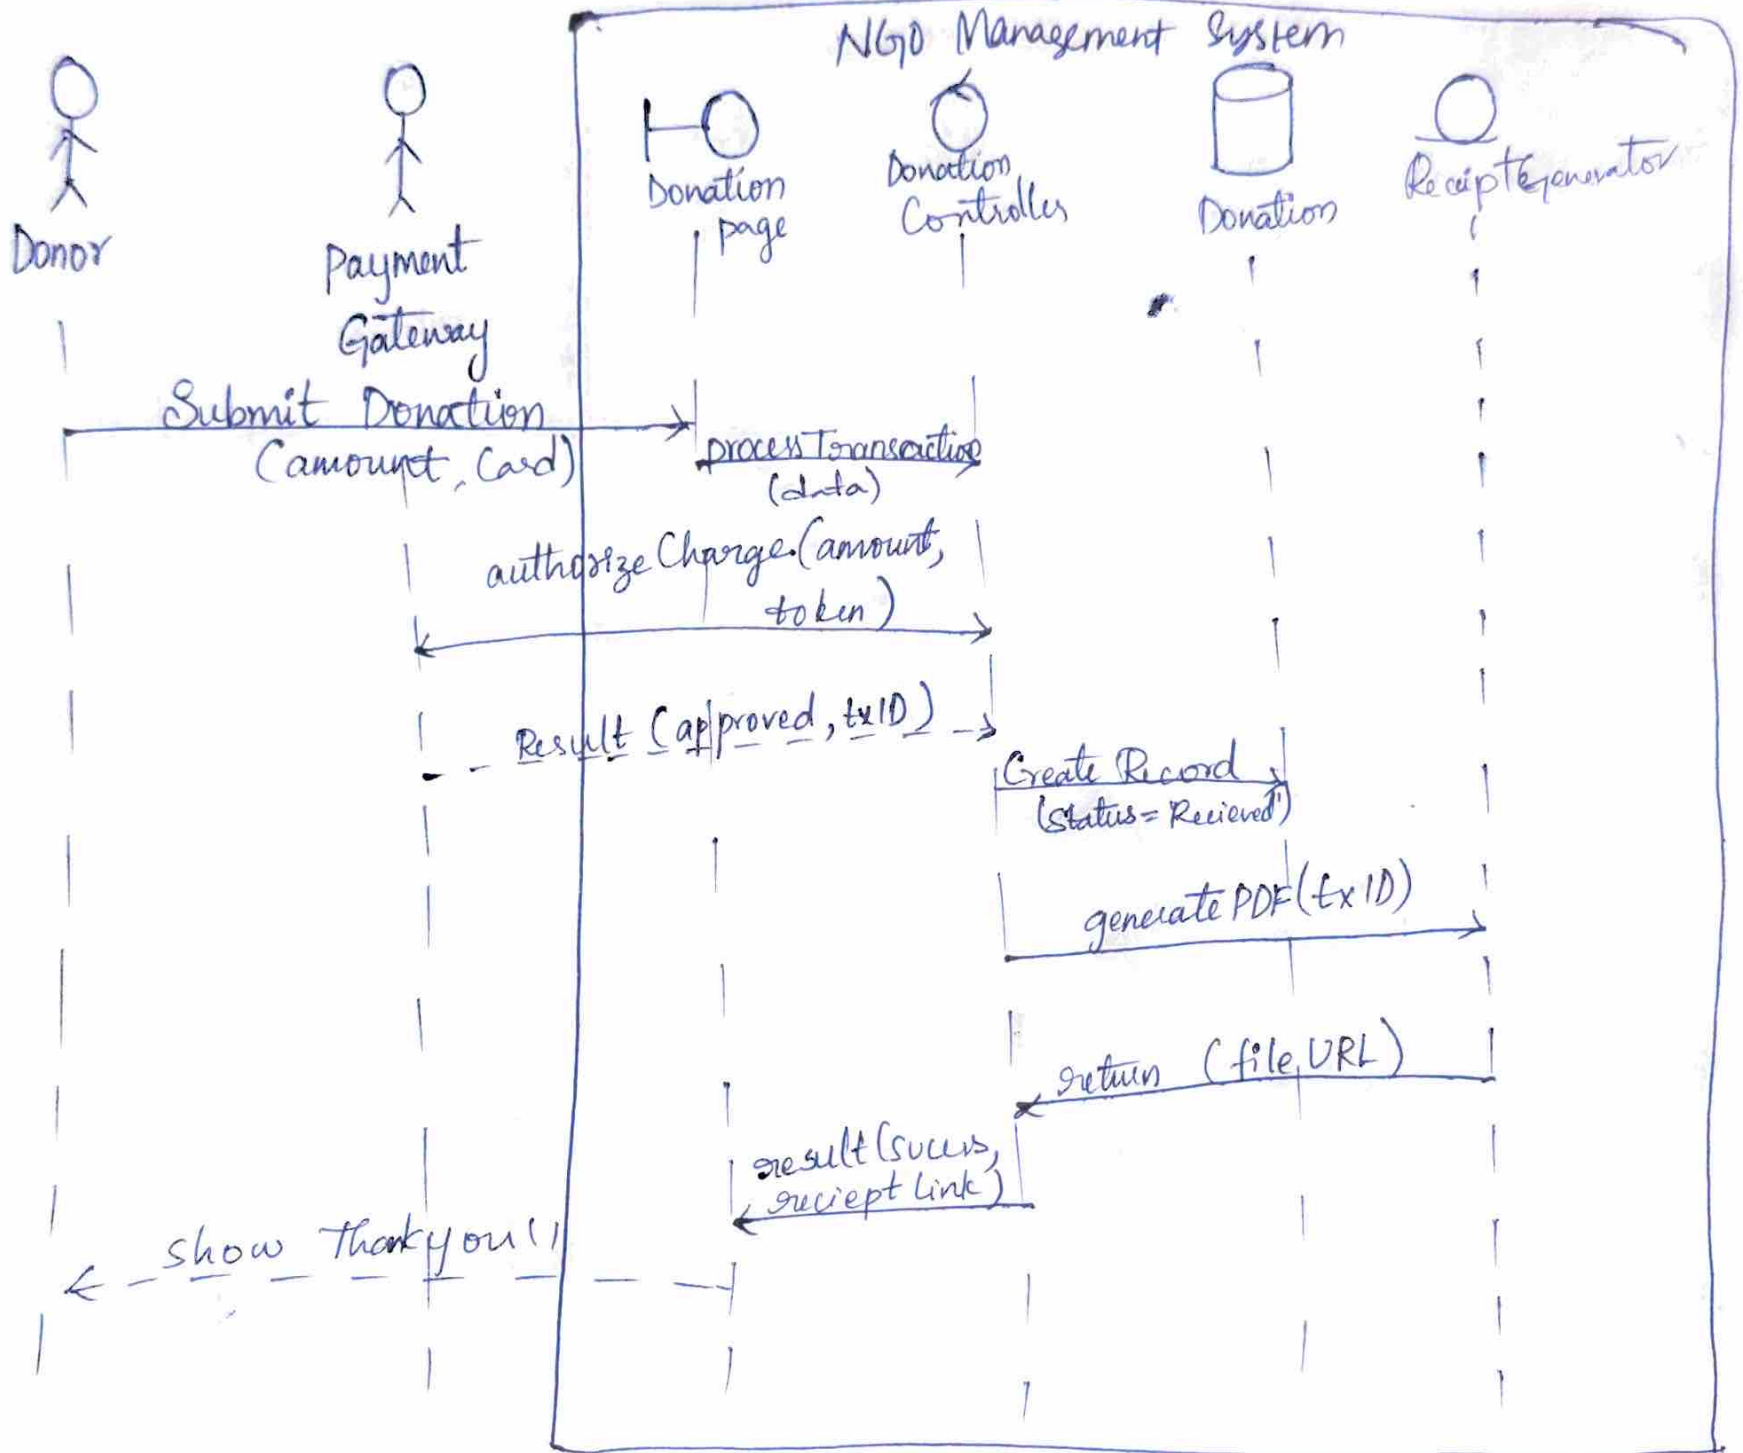 NGO Management System
Donor
Payment
Gateway
Donation
page
Donation
Controller
Donation
ReceiptGenerator
Submit Donation
(amount, Card)
processTransaction
(data)
authorizeCharge(amount,
token)
Result (approved, txID)
Create Record
(status='Recieved')
generatePDF(txID)
return (file,URL)
result(success,
reciept link)
show Thankyou()